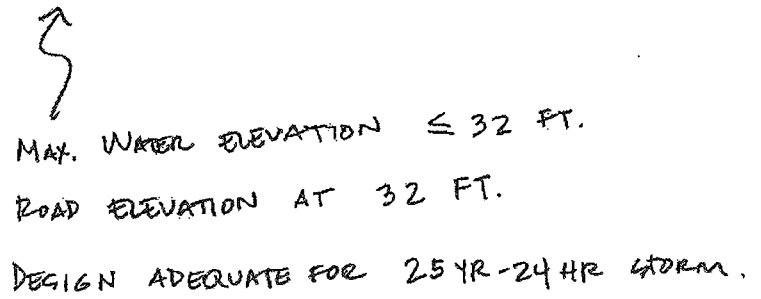 MAX. WATER ELEVATION ≤ 32 FT.
ROAD ELEVATION AT 32 FT.
DESIGN ADEQUATE FOR 25 YR-24 HR STORM.